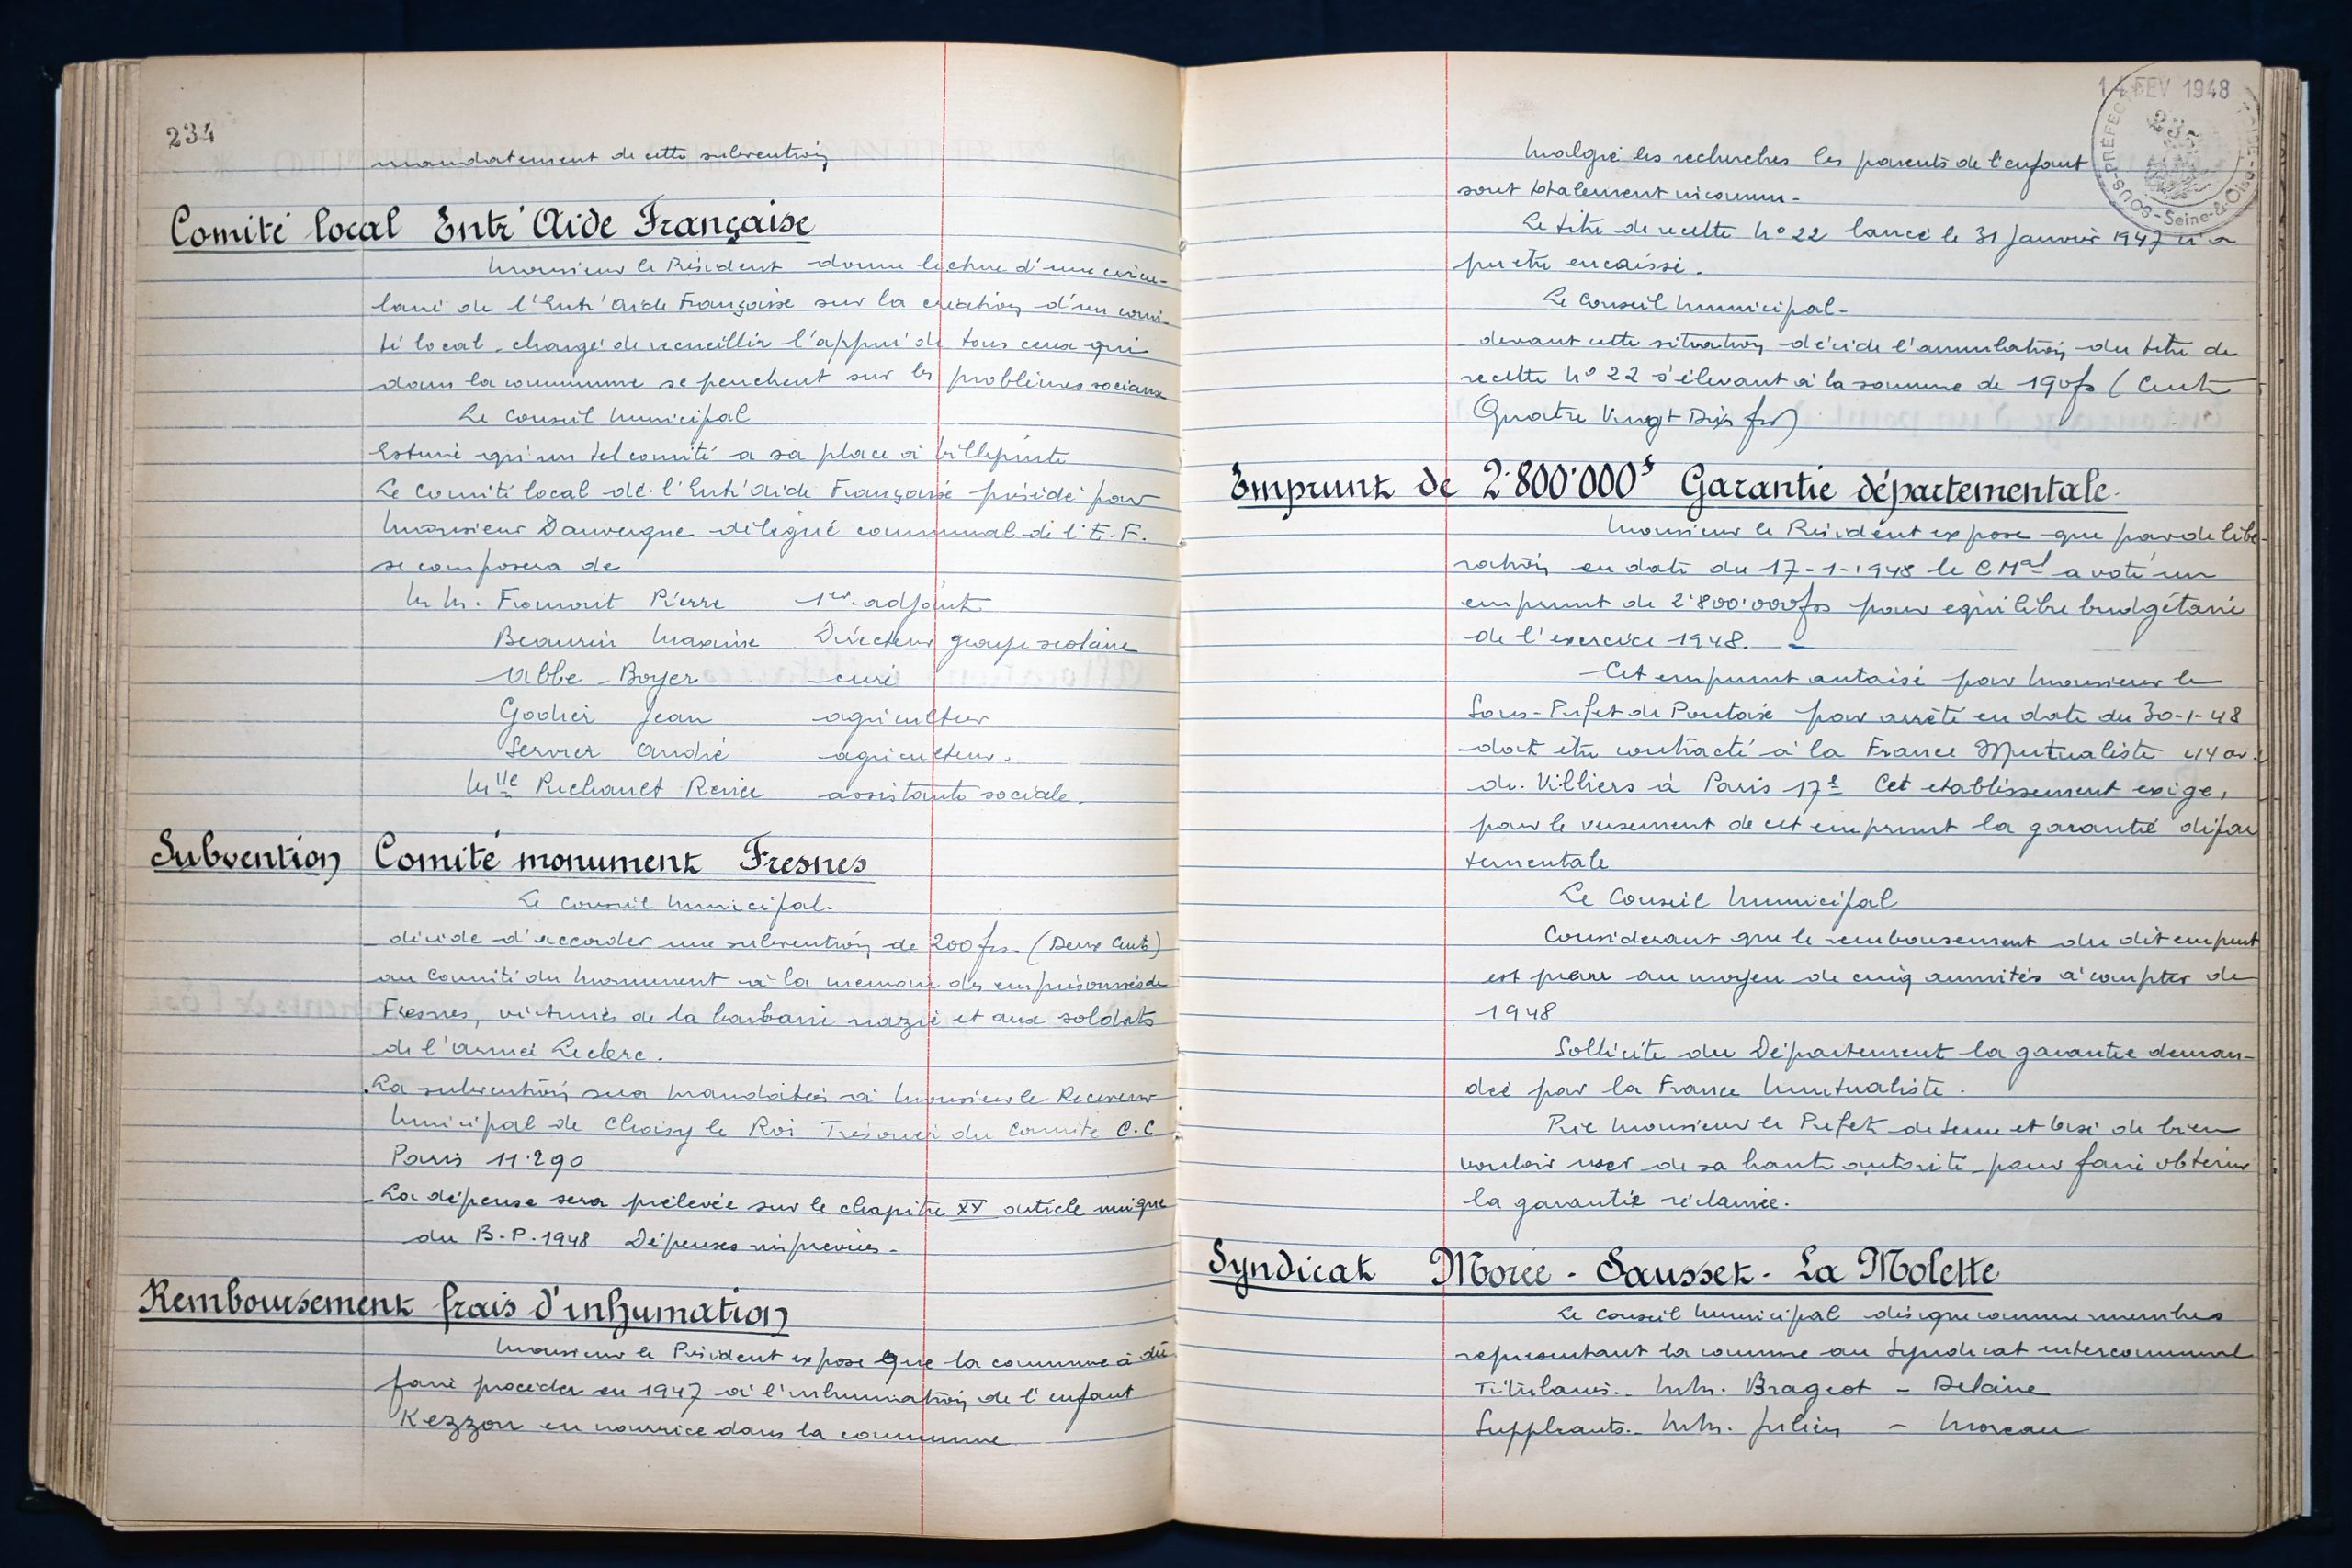 234
mandatement de cette subvention
Comité local Entr'Aide Française
Monsieur le Président donne lecture d'une circu-
laire de l'Entr'Aide Française sur la création d'un comi-
té local chargé de recueillir l'appui de tous ceux qui
dans la commune se penchent sur les problèmes sociaux
Le Conseil Municipal
Estime qu'un tel comité a sa place à Villepinte
Le Comité local de l'Entr'Aide Française présidé par
Monsieur Dauvergne délégué communal de l'E.F.
se composera de
MM. Fromont Pierre 1er adjoint
Beaurin Maxime Directeur groupe scolaire
Abbé Boyer curé
Godier Jean agriculteur
Servier André agriculteur.
Mlle Renée assistante sociale.
Subvention Comité monument Fresnes
Le Conseil Municipal.
décide d'accorder une subvention de 200 frs. (Deux Cents)
au Comité du Monument à la mémoire des emprisonnés de
Fresnes, victimes de la barbarie nazie et aux soldats
de l'armée Leclerc.
La subvention sera mandatée à Monsieur le Receveur
Municipal de Choisy le Roi Trésorier du Comité C.C
Paris 11.290
La dépense sera prélevée sur le chapitre XX article unique
du B.P. 1948 Dépenses imprévues.
Remboursement frais d'inhumation
Monsieur le Président expose que la commune à dû
faire procéder en 1947 à l'inhumation de l'enfant
Kezzou en nourrice dans la commune
14 FEV 1948
SOUS-PRÉFECTURE Seine-&-Oise
235
Malgré les recherches les parents de l'enfant
sont totalement inconnu-
Le titre de recette N° 22 lancé le 31 Janvier 1947 n'a
pu etre encaissé.
Le Conseil Municipal-
devant cette situation décide l'annulation du titre de
recette N° 22 s'élevant à la somme de 190fs (Cent
Quatre Vingt Dix frs)
Emprunt de 2.800.000f Garantie départementale.
Monsieur le Président expose que par délibé-
ration en date du 17-1-1948 le C Mal a voté un
emprunt de 2.800.000frs pour équilibre budgétaire
de l'exercice 1948.
Cet emprunt autorisé par Monsieur le
Sous-Préfet de Pontoise par arrêté en date du 30-1-48
doit être contracté à la France Mutualiste 44 av.
de Villiers à Paris 17e Cet etablissement exige,
pour le versement de cet emprunt la garantie dépar
tementale
Le Conseil Municipal
Considerant que le remboursement du dit emprunt
est prévu au moyen de cinq annuités à compter de
1948
Sollicite du Département la garantie deman-
dée par la France Mutualiste.
Prie Monsieur le Préfet de Seine et Oise de bien
vouloir user de sa haute autorité pour faire obtenir
la garantie réclamée.
Syndicat Morée - Sausset - La Molette
Le Conseil Municipal désigne comme membres
représentant la commune au Syndicat intercommunal
Titulaires.. MM. Brageot - Delaine
Suppléants.. MM. Julien - Moreau